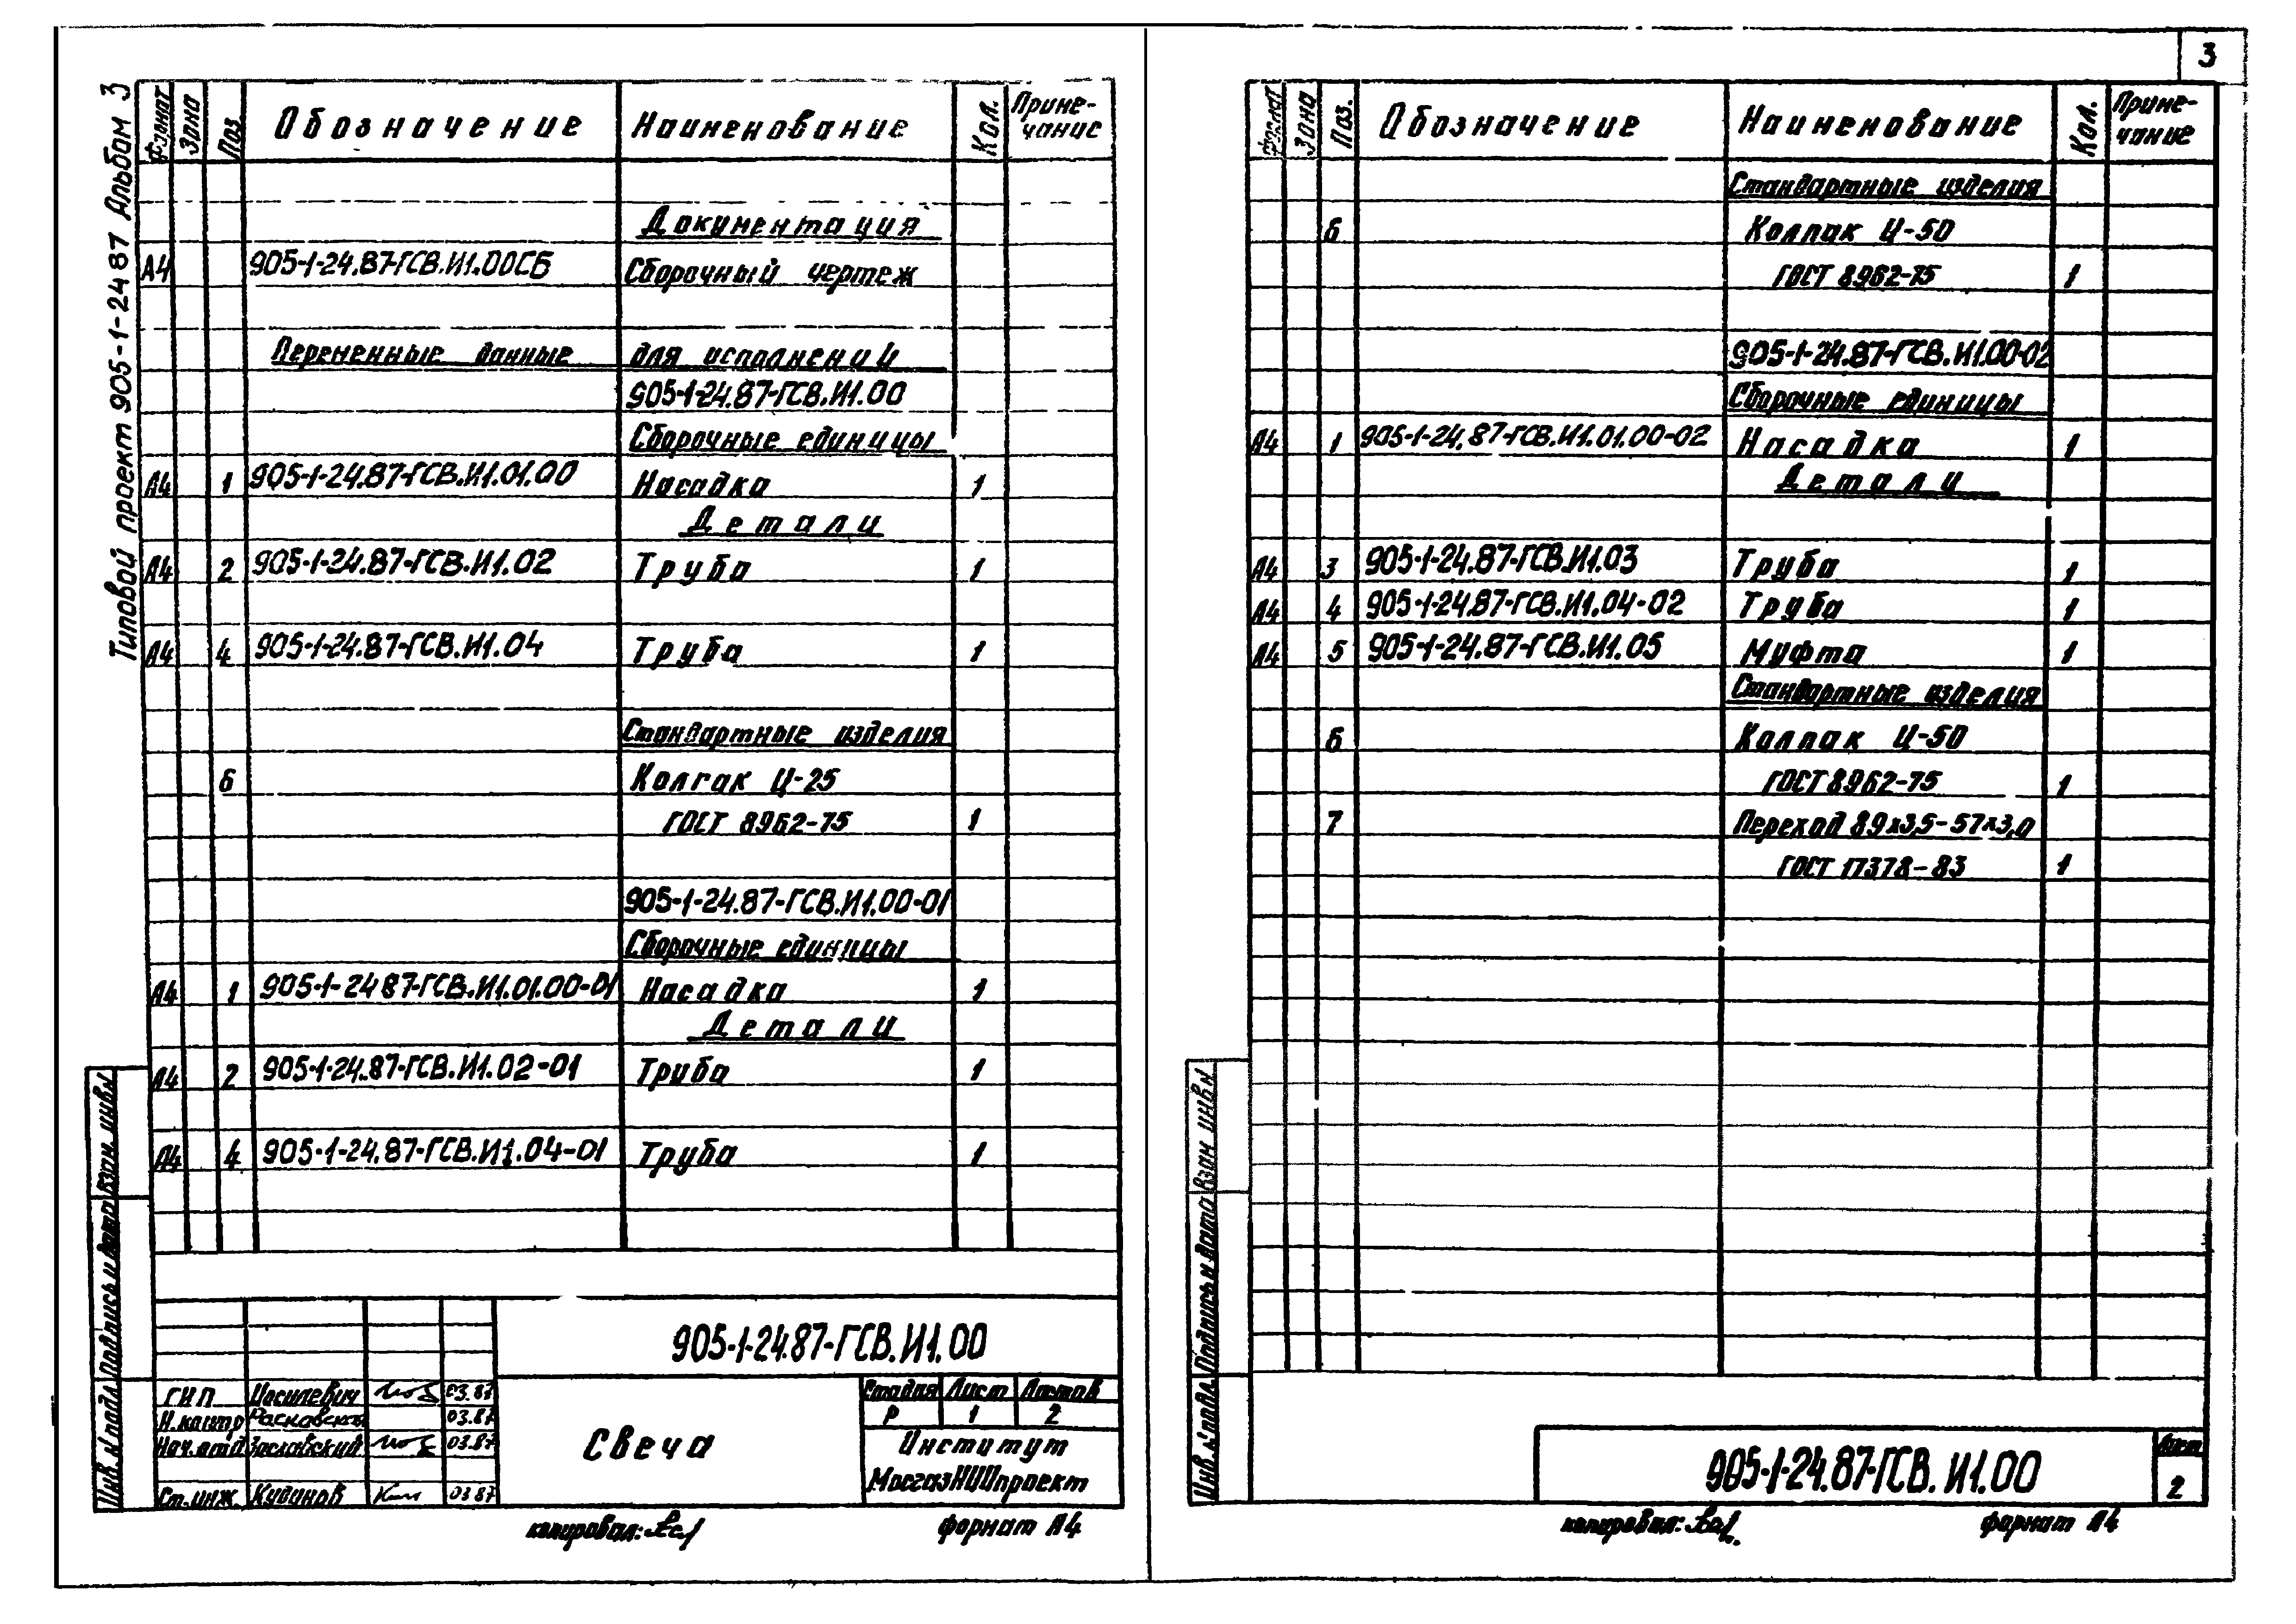 3
Типовой проект 905-1-24 87 Альбом 3
Формат Зона Поз. Обозначение Наименование Кол. Приме-чание
Документация
А4 905-1-24.87-ГСВ.И1.00СБ Сборочный чертеж
Переменные данные для исполнений
905-1-24.87-ГСВ.И1.00
Сборочные единицы
А4 1 905-1-24.87-ГСВ.И1.01.00 Насадка 1
Детали
А4 2 905-1-24.87-ГСВ.И1.02 Труба 1
А4 4 905-1-24.87-ГСВ.И1.04 Труба 1
Стандартные изделия
6 Колпак Ц-25
ГОСТ 8962-75 1
905-1-24.87-ГСВ.И1.00-01
Сборочные единицы
А4 1 905-1-24 87-ГСВ.И1.01.00-01 Насадка 1
Детали
А4 2 905-1-24.87-ГСВ.И1.02-01 Труба 1
А4 4 905-1-24.87-ГСВ.И1.04-01 Труба 1
Взам. инв.N
Подпись и дата
Инв. N подл
905-1-24.87-ГСВ.И1.00
ГИП Иосилевич 03.87
Н.контр 03.87
Нач.отд Заславский 03.87
Ст.инж Кубинов 03 87
Свеча
Стадия Лист Листов
Р 1 2
Институт
МосгазНИИпроект
копировал: формат А4
Формат Зона Поз. Обозначение Наименование Кол. Приме-чание
Стандартные изделия
6 Колпак Ц-50
ГОСТ 8962-75 1
905-1-24.87-ГСВ.И1.00-02
Сборочные единицы
А4 1 905-1-24.87-ГСВ.И1.01.00-02 Насадка 1
Детали
А4 3 905-1-24.87-ГСВ.И1.03 Труба 1
А4 4 905-1-24.87-ГСВ.И1.04-02 Труба 1
А4 5 905-1-24.87-ГСВ.И1.05 Муфта 1
Стандартные изделия
6 Колпак Ц-50
ГОСТ 8962-75 1
7 Переход 89х3,5-57х3,0
ГОСТ 17378-83 1
Взам инв.N
Подпись и дата
Инв. N подл.
905-1-24.87-ГСВ. И1.00
Лист
2
копировал: формат А4